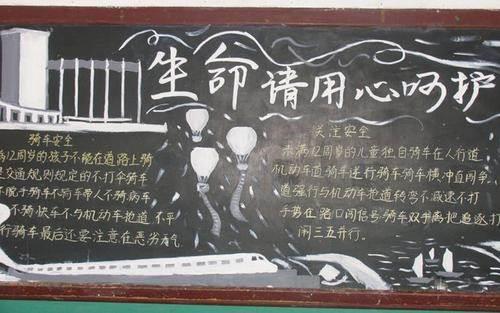 生命请用心呵护
骑车安全
满12周岁的孩子不能在道路上骑
交通规则规定的不打伞骑车
不脱手骑车不骑车带人不骑病车
不骑快车不与机动车抢道 不平
行骑车最后还要注意在恶劣有气
关注安全
未满12周岁的儿童独自骑车在人行道
机动车道骑车逆行骑车骑车横冲直闯争
道强行与机动车抢道转弯不减速不打
手势在路口闯信号骑车双手离把追逐打
闹三五并行。